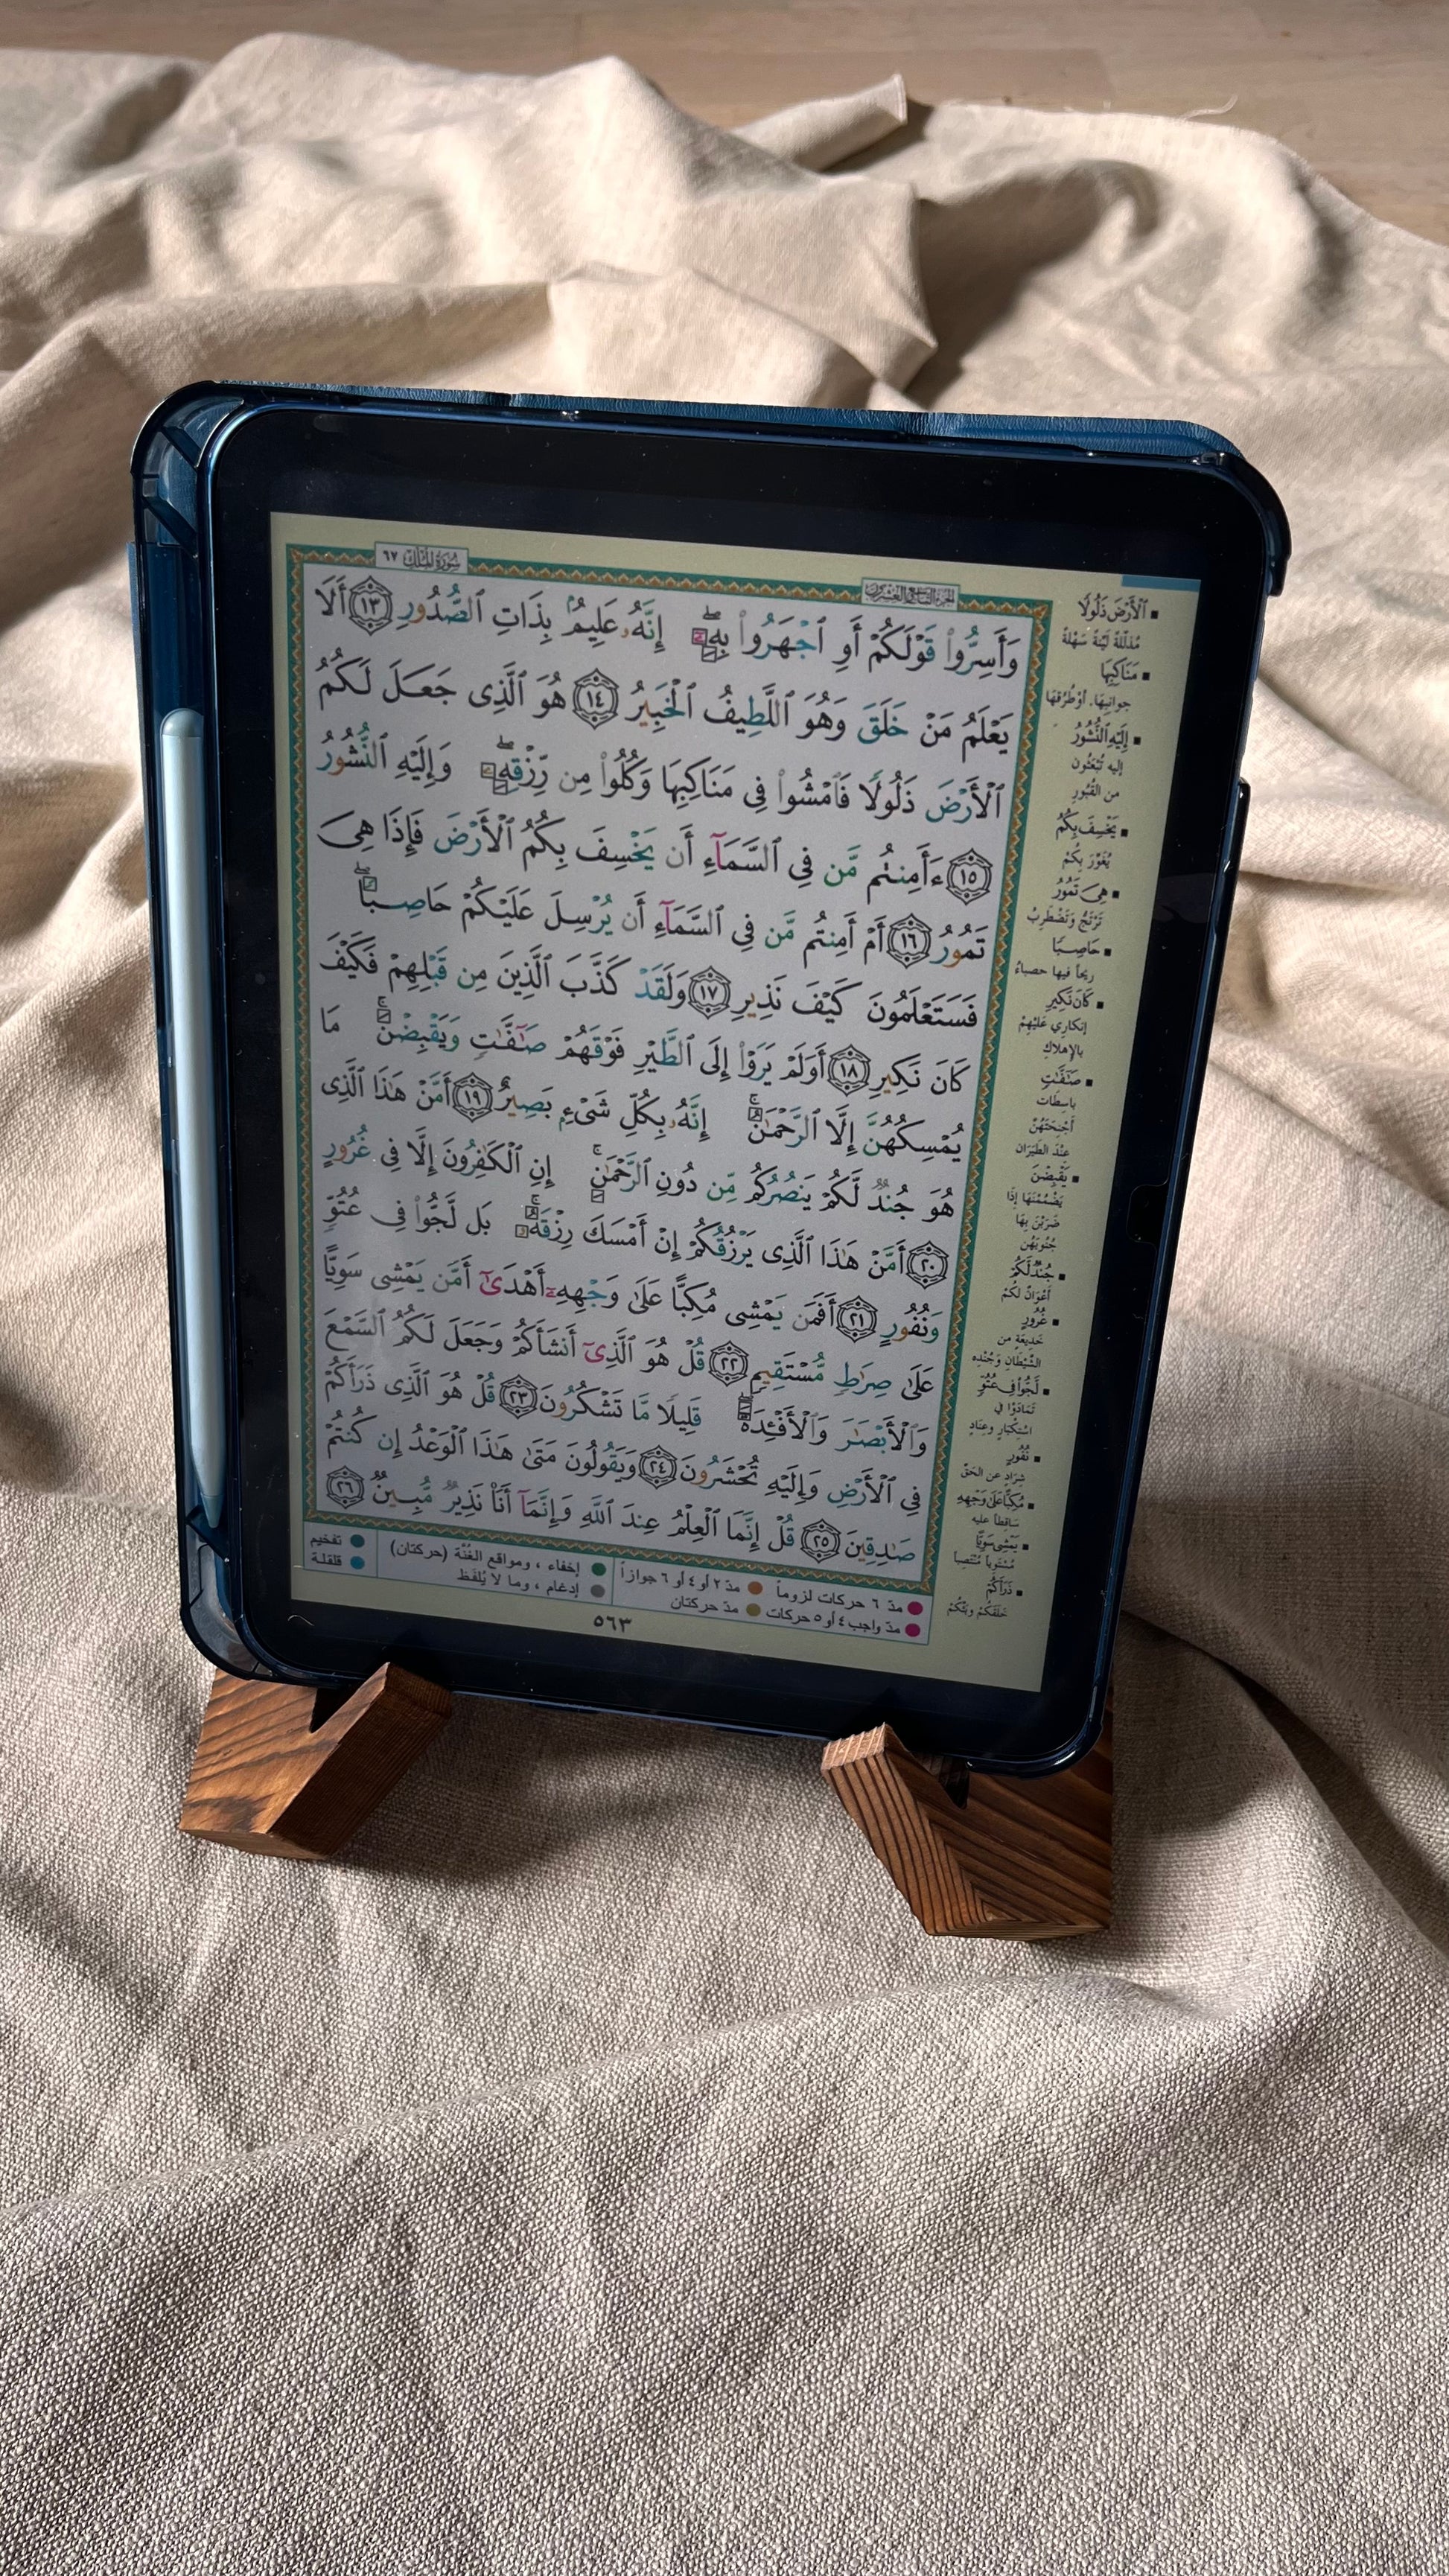 سُورَةُ المُلْكِ ٦٧
الجزء التاسع والعشرون
وَأَسِرُّوا۟ قَوْلَكُمْ أَوِ ٱجْهَرُوا۟ بِهِۦٓ ۖ إِنَّهُۥ عَلِيمٌۢ بِذَاتِ ٱلصُّدُورِ ١٣ أَلَا
يَعْلَمُ مَنْ خَلَقَ وَهُوَ ٱللَّطِيفُ ٱلْخَبِيرُ ١٤ هُوَ ٱلَّذِى جَعَلَ لَكُمُ
ٱلْأَرْضَ ذَلُولًا فَٱمْشُوا۟ فِى مَنَاكِبِهَا وَكُلُوا۟ مِن رِّزْقِهِۦ ۖ وَإِلَيْهِ ٱلنُّشُورُ
١٥ ءَأَمِنتُم مَّن فِى ٱلسَّمَآءِ أَن يَخْسِفَ بِكُمُ ٱلْأَرْضَ فَإِذَا هِىَ
تَمُورُ ١٦ أَمْ أَمِنتُم مَّن فِى ٱلسَّمَآءِ أَن يُرْسِلَ عَلَيْكُمْ حَاصِبًا ۖ
فَسَتَعْلَمُونَ كَيْفَ نَذِيرِ ١٧ وَلَقَدْ كَذَّبَ ٱلَّذِينَ مِن قَبْلِهِمْ فَكَيْفَ
كَانَ نَكِيرِ ١٨ أَوَلَمْ يَرَوْا۟ إِلَى ٱلطَّيْرِ فَوْقَهُمْ صَٰٓفَّٰتٍ وَيَقْبِضْنَ ۚ مَا
يُمْسِكُهُنَّ إِلَّا ٱلرَّحْمَٰنُ ۚ إِنَّهُۥ بِكُلِّ شَىْءٍۭ بَصِيرٌ ١٩ أَمَّنْ هَٰذَا ٱلَّذِى
هُوَ جُندٌ لَّكُمْ يَنصُرُكُم مِّن دُونِ ٱلرَّحْمَٰنِ ۚ إِنِ ٱلْكَٰفِرُونَ إِلَّا فِى غُرُورٍ
٢٠ أَمَّنْ هَٰذَا ٱلَّذِى يَرْزُقُكُمْ إِنْ أَمْسَكَ رِزْقَهُۥ ۚ بَل لَّجُّوا۟ فِى عُتُوٍّ
وَنُفُورٍ ٢١ أَفَمَن يَمْشِى مُكِبًّا عَلَىٰ وَجْهِهِۦٓ أَهْدَىٰٓ أَمَّن يَمْشِى سَوِيًّا
عَلَىٰ صِرَٰطٍ مُّسْتَقِيمٍ ٢٢ قُلْ هُوَ ٱلَّذِىٓ أَنشَأَكُمْ وَجَعَلَ لَكُمُ ٱلسَّمْعَ
وَٱلْأَبْصَٰرَ وَٱلْأَفْـِٔدَةَ ۖ قَلِيلًا مَّا تَشْكُرُونَ ٢٣ قُلْ هُوَ ٱلَّذِى ذَرَأَكُمْ
فِى ٱلْأَرْضِ وَإِلَيْهِ تُحْشَرُونَ ٢٤ وَيَقُولُونَ مَتَىٰ هَٰذَا ٱلْوَعْدُ إِن كُنتُمْ
صَٰدِقِينَ ٢٥ قُلْ إِنَّمَا ٱلْعِلْمُ عِندَ ٱللَّهِ وَإِنَّمَآ أَنَا۠ نَذِيرٌ مُّبِينٌ ٢٦
ٱلْأَرْضَ ذَلُولًا
مُذَلَّلَةً لَيِّنَةً سَهْلَةً
مَنَاكِبِهَا
جوانبِهَا، أوْ طُرُقِهَا
إِلَيْهِ ٱلنُّشُورُ
إليه تُبْعَثُون
من القُبُورِ
يَخْسِفَ بِكُمُ
يُغَوِّرَ بِكُمْ
هِىَ تَمُورُ
تَرْتَجُّ وَتَضْطَرِبُ
حَاصِبًا
ريحاً فيها حصباءُ
كَانَ نَكِيرِ
إنكاري عَلَيْهِمْ
بالإهلاكِ
صَٰٓفَّٰتٍ
باسِطَات
أَجْنِحَتَهُنَّ
عِنْدَ الطَّيَرَان
يَقْبِضْنَ
يَضْمُمْنَهَا إذَا
ضَرَبْنَ بِهَا
جُنُوبَهُن
جُندٌ لَّكُمْ
أَعْوَانٌ لَكُمْ
غُرُورٍ
خَدِيعَةٍ من
الشَّيْطَانِ وَجُنْدِه
لَّجُّوا۟ فِى عُتُوٍّ
تَمَادَوْا في
اسْتِكْبَارٍ وعِنَادٍ
نُفُورٍ
شِرَادٍ عن الحَقِّ
مُكِبًّا عَلَىٰ وَجْهِهِ
سَاقِطاً عليه
يَمْشِى سَوِيًّا
مُسْتَوِياً مُنْتَصِباً
ذَرَأَكُمْ
خَلَقَكُمْ وبَثَّكُمْ
مدّ ٦ حركات لزوماً
مدّ ٢ أو ٤ أو ٦ جوازاً
إخفاء ، ومواقع الغُنَّة (حركتان)
تفخيم
مدّ واجب ٤ أو ٥ حركات
مدّ حركتان
إدغام ، وما لا يُلفَظ
قلقلة
٥٦٣